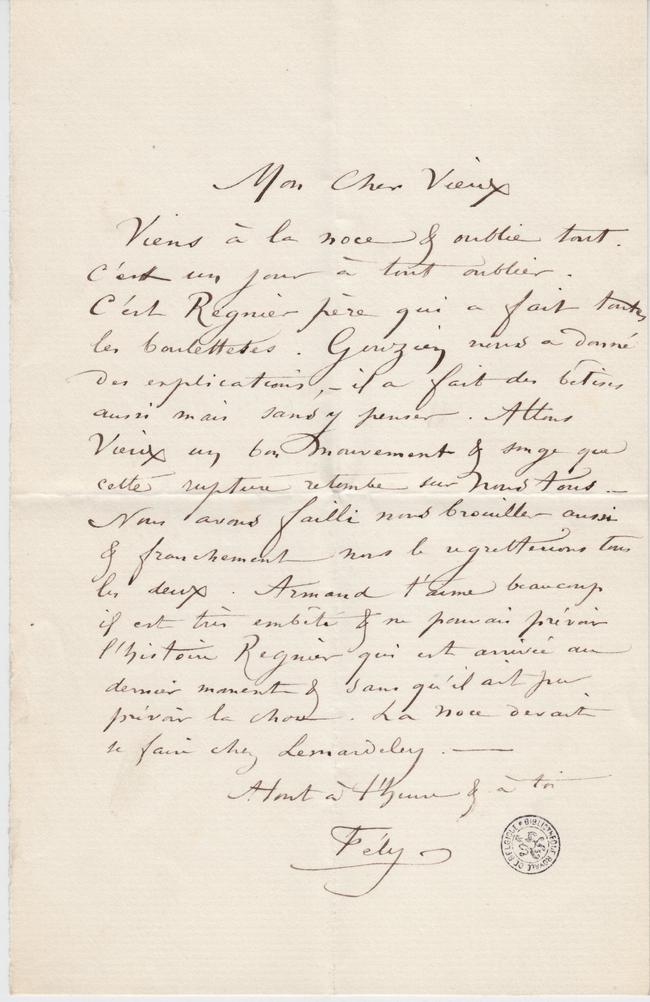 Mon Cher Vieux
Viens à la noce & oublie tout.
C'est un jour à tout oublier.
C'est Regnier père qui a fait toutes
les boulettetes. Gouzien nous a donné
des explications, - il a fait des bêtises
aussi mais sans y penser. Allons
Vieux un bon mouvement & songe que
cette rupture retombe sur nous tous _
Nous avons failli nous brouiller aussi
& franchement nous le regretterions tous
les deux. Armand t'aime beaucoup
il est très embêté & ne pouvais prévoir
l'histoire Regnier qui est arrivée au
dernier moment & sans qu'il ait pu
prévoir la chose. La noce devait
se faire chez Lemardeley. —
A tout à l'heure & à toi
Fély
BIBLIOTHÈQUE ROYALE DE BELGIQUE